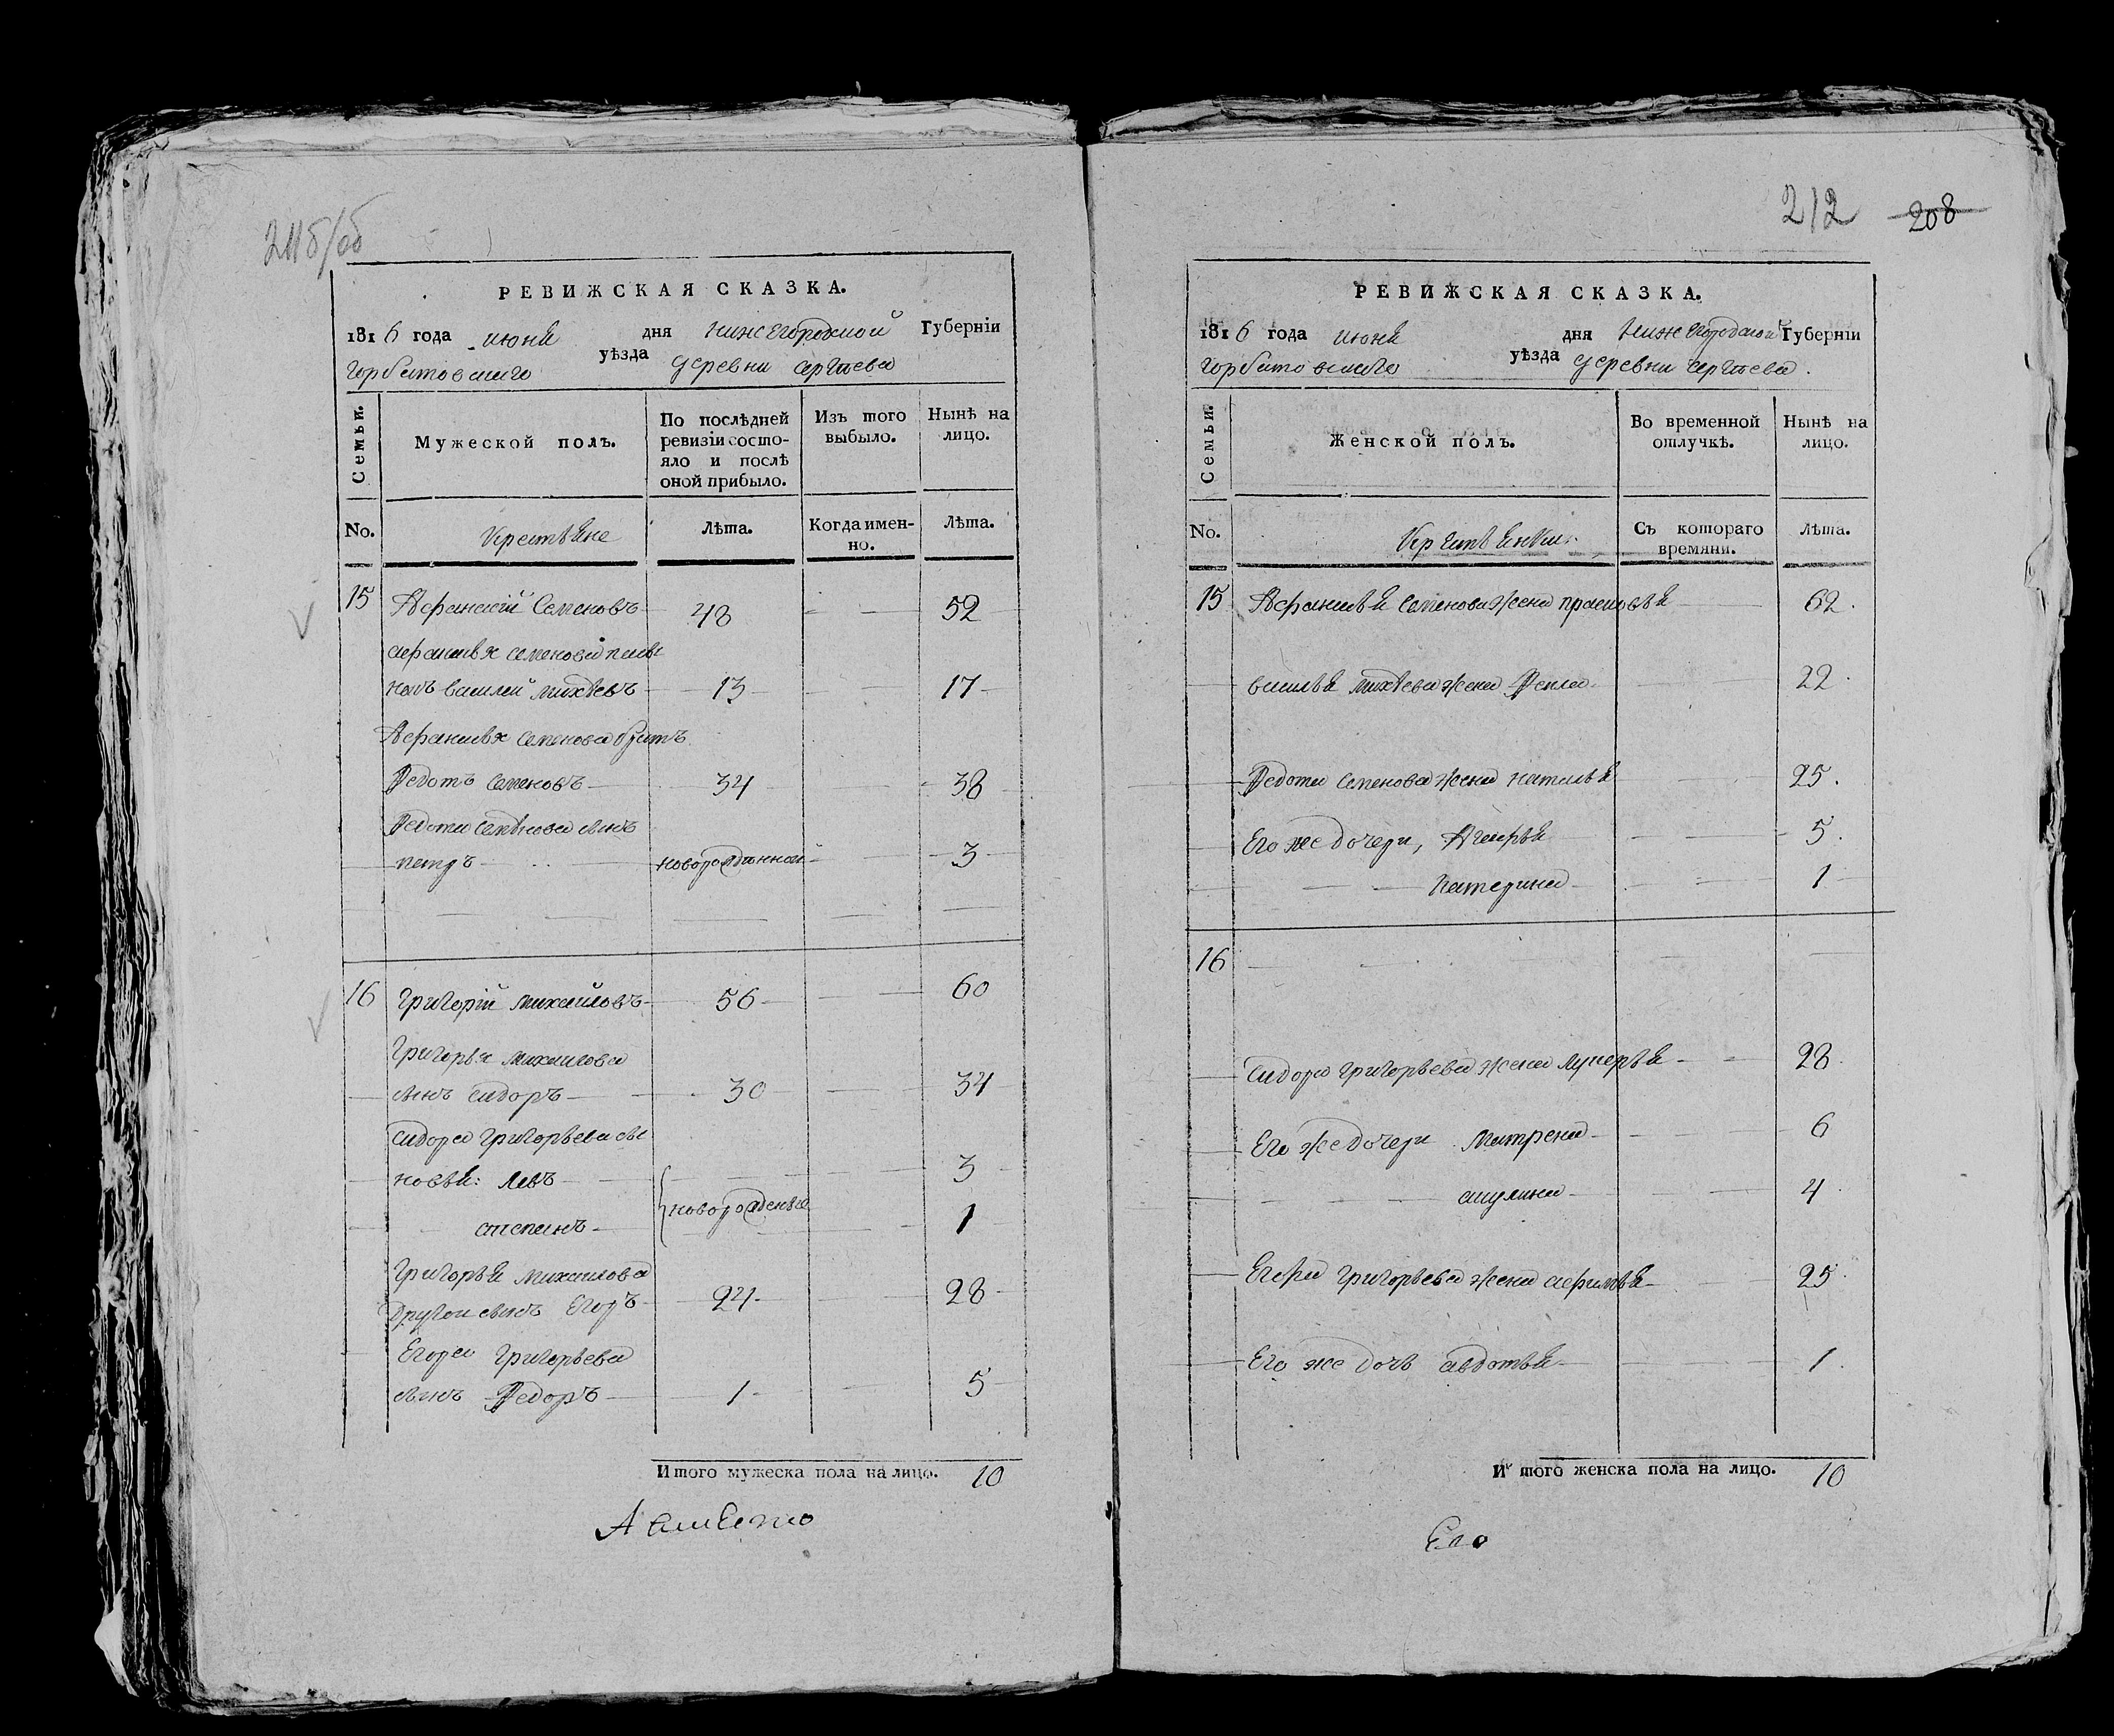 211б/об
РЕВИЖСКАЯ СКАЗКА.
1816 года июня дня нижегородской Губерніи
горбатовскаго уѣзда деревни сергѣева
Семьи.
Мужеской полъ.
По послѣдней ревизіи состояло и послѣ оной прибыло.
Изъ того выбыло.
Нынѣ на лицо.
No.
Крестьяне
Лѣта.
Когда именно.
Лѣта.
15 Афанасій Семеновъ 48 52
афанасья семенова племя
нникъ василей михѣевъ 13 17
Афанасья семенова братъ
Федотъ семеновъ 34 38
Федота семѣнова сынъ
петръ новорожденной 3
16 григорій михайловъ 56 60
григорья михаилова
сынъ сидоръ 30 34
сидора григорьева сы
новья: левъ 3
новорожденые
степанъ 1
григорья михаилова
другой сынъ Егоръ 24 28
Егора григорьева
сынъ Федоръ 1 5
Итого мужеска пола на лицо. 10
212 208
РЕВИЖСКАЯ СКАЗКА.
1816 года июня дня нижегородской Губерніи
горбатовскаго уѣзда деревни сергѣева.
Семьи.
Женской полъ.
Во временной отлучкѣ.
Нынѣ на лицо.
No.
Крестьянки.
Съ котораго времяни.
Лѣта.
15 Афанасья семенова жена прасковья 62.
василья михѣева жена Фекла 22.
Федота семенова жена наталья 25.
Его же дочери, 5.
катерина 1
16
сидора григорьева жена лукерья 28.
Его же дочери матрена 6
акулина 4.
Егора григорьева жена афимья 25.
Его же дочь авдотья 1.
Итого женска пола на лицо. 10
Его